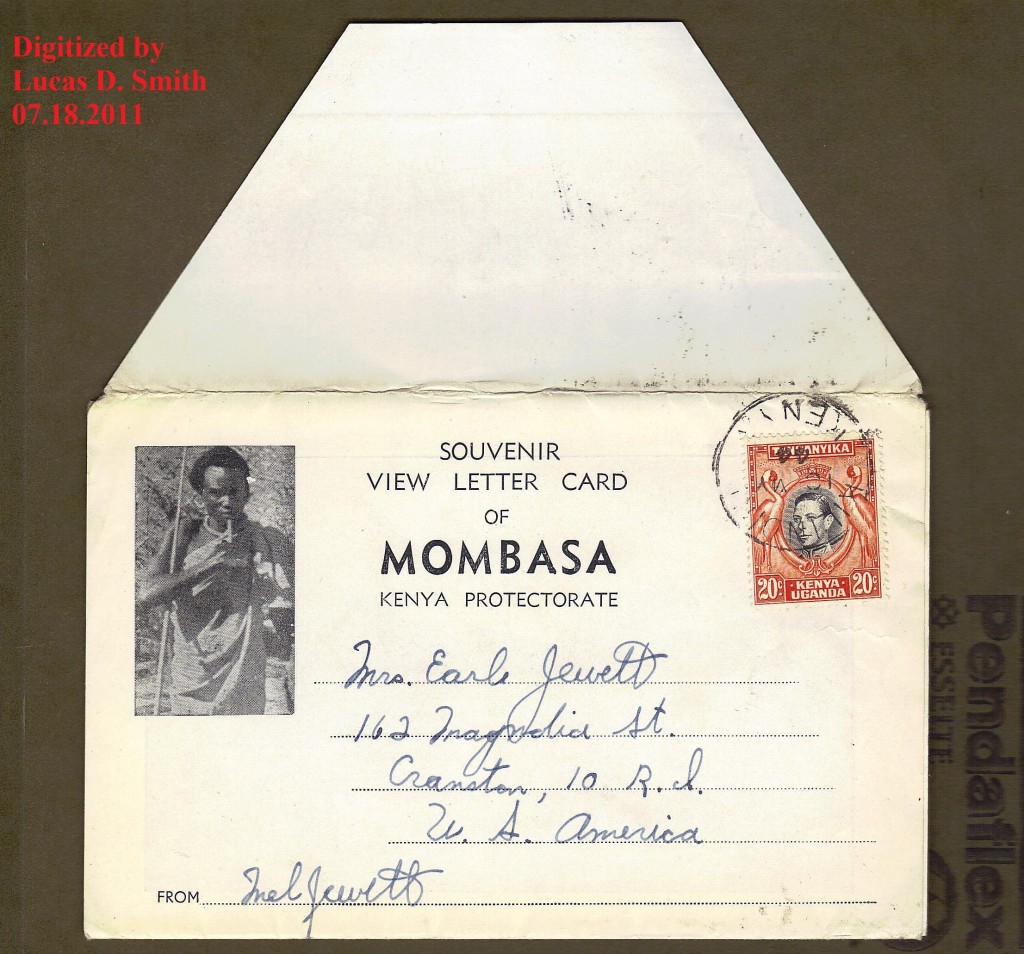 Digitized by
Lucas D. Smith
07.18.2011
SOUVENIR
VIEW LETTER CARD
OF
MOMBASA
KENYA PROTECTORATE
KENY
TANGANYIKA
20c KENYA UGANDA 20c
Mrs. Earle Jewett
162 Magnolia St.
Cranston, 10 R.I.
U. S. America
FROM Mel Jewett
pendaflex
ESSELTE